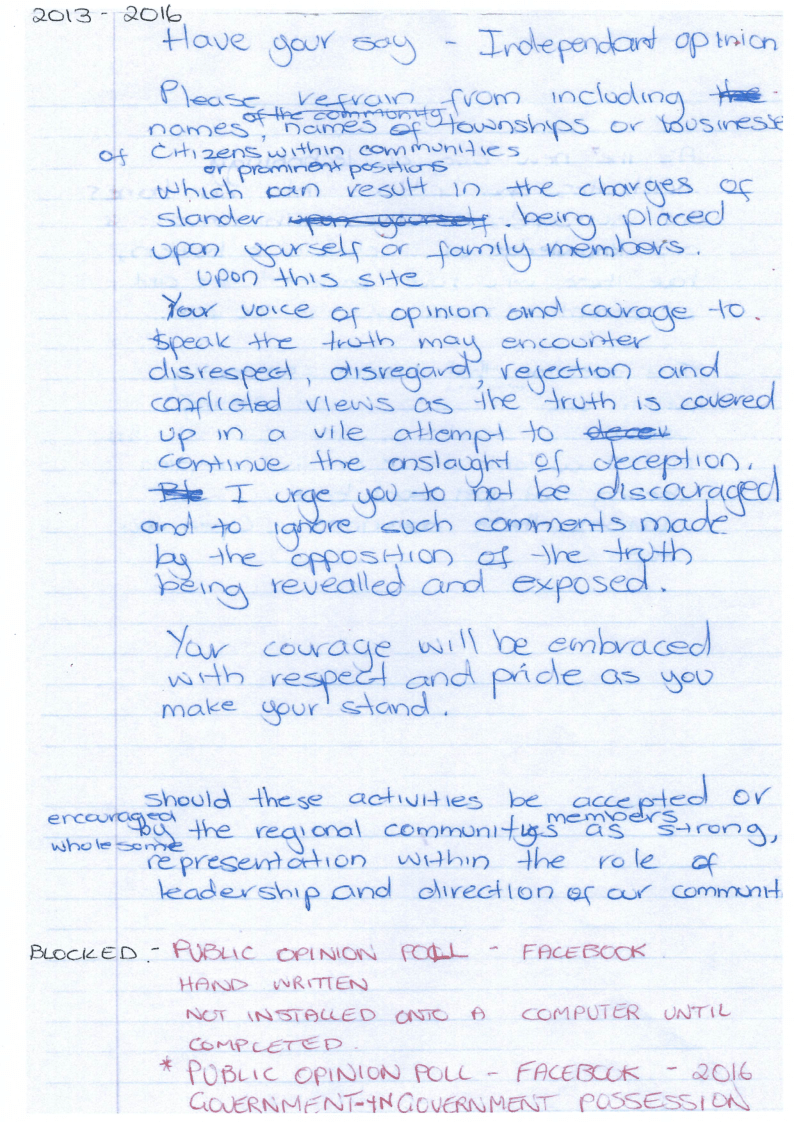 2013 - 2016
Have your say - Independant opinion
Please refrain from including the
of the community
names, names of townships or businesse
of citizens within communities
or prominent positions
which can result in the charges of
slander upon yourself . being placed
upon yourself or family members.
upon this site
Your voice of opinion and courage to.
speak the truth may encounter
disrespect, disregard, rejection and
conflicted views as the truth is covered
up in a vile attempt to decev
continue the onslaught of deception.
I urge you to not be discouraged
and to ignore such comments made
by the opposition of the truth
being revealled and exposed.
Your courage will be embraced
with respect and pride as you
make your stand.
should these activities be accepted or
encouraged members
by the regional communitys as strong,
wholesome
representation within the role of
leadership and direction of our communit
BLOCKED - PUBLIC OPINION POLL - FACEBOOK
HAND WRITTEN
NOT INSTALLED ONTO A COMPUTER UNTIL
COMPLETED.
* PUBLIC OPINION POLL - FACEBOOK - 2016
GOVERNMENT-IN GOVERNMENT POSSESSION